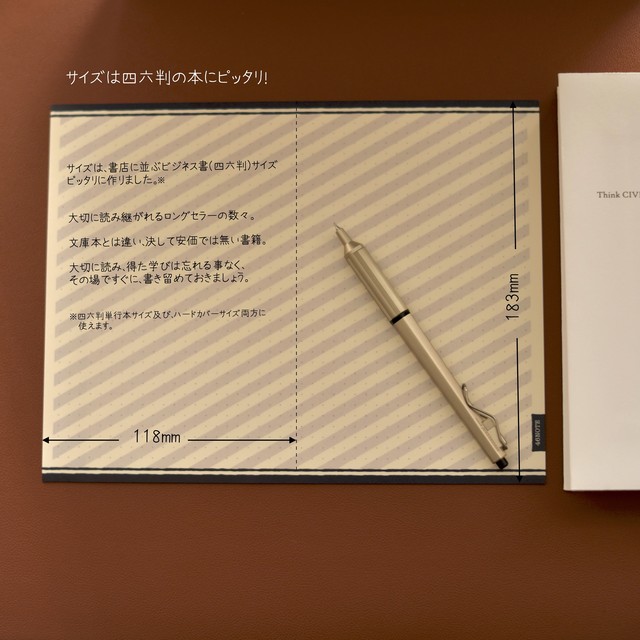 サイズは四六判の本にピッタリ!
サイズは、書店に並ぶビジネス書(四六判)サイズ
ピッタリに作りました。※
大切に読み継がれるロングセラーの数々。
文庫本とは違い、決して安価では無い書籍。
大切に読み、得た学びは忘れる事なく、
その場ですぐに、書き留めておきましょう。
※四六判単行本サイズ及び、ハードカバーサイズ両方に
使えます。
118mm
183mm
46NOTE
Think CIV